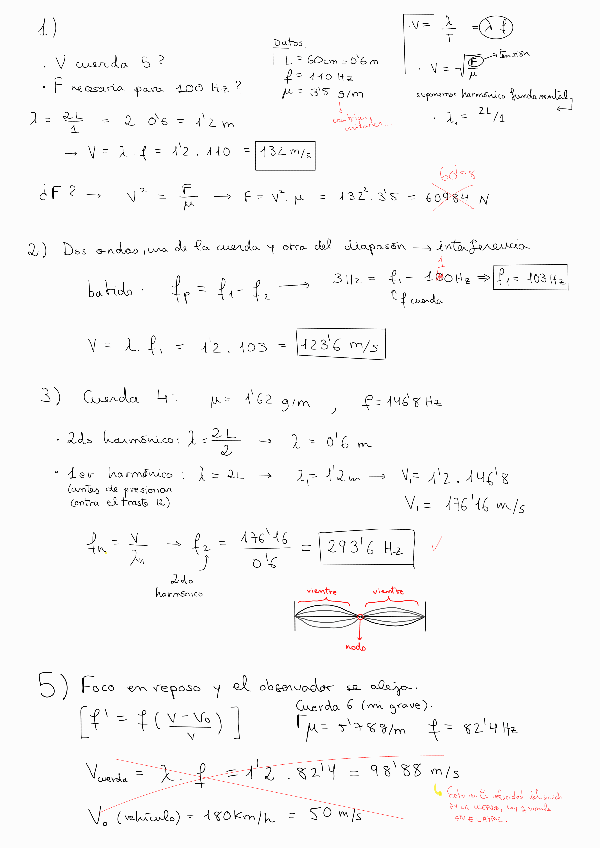 1)
· V cuerda 5 ?
· F necesaria para 100 Hz ?
Datos:
L = 60 cm = 0'6 m
f = 110 Hz
μ = 3'5 g/m
· V = λ/T = λ·f
· V = √F/μ → tensión
suponemos harmónico fundamental
· λ₁ = 2L/1
λ = 2L/1 = 2·0'6 = 1'2 m
→ V = λ·f = 1'2·110 = 132 m/s
¿F? → V² = F/μ → F = V²·μ = 132²·3'5 = 60984 N
2) Dos ondas, una de la cuerda y otra del diapasón → interferencia
batido · fp = f₁ - f₂ → 3Hz = f₁ - 100Hz ⇒ f₁ = 103Hz
f cuerda
V = λ·f₁ = 12·103 = 123'6 m/s
3) Cuerda 4: μ = 1'62 g/m , f = 146'8 Hz
· 2do harmónico: λ = 2L/2 → λ = 0'6 m
· 1er harmónico: λ = 2L → λ₁ = 1'2 m → V₁ = 1'2·146'8
(antes de presionar
contra el traste 12)
V₁ = 176'16 m/s
fn = V/λn → f₂ = 176'16/0'6 = 293'6 Hz ✓
2do
harmónico
vientre vientre
nodo
5) Foco en reposo y el observador se aleja.
[f' = f(V-V₀/V)]
Cuerda 6 (mi grave).
μ = 5'78 g/m f = 82'4 Hz
Vcuerda = λ·f = 1'2·82'4 = 98'88 m/s
V₀ (vehículo) = 180 km/h = 50 m/s